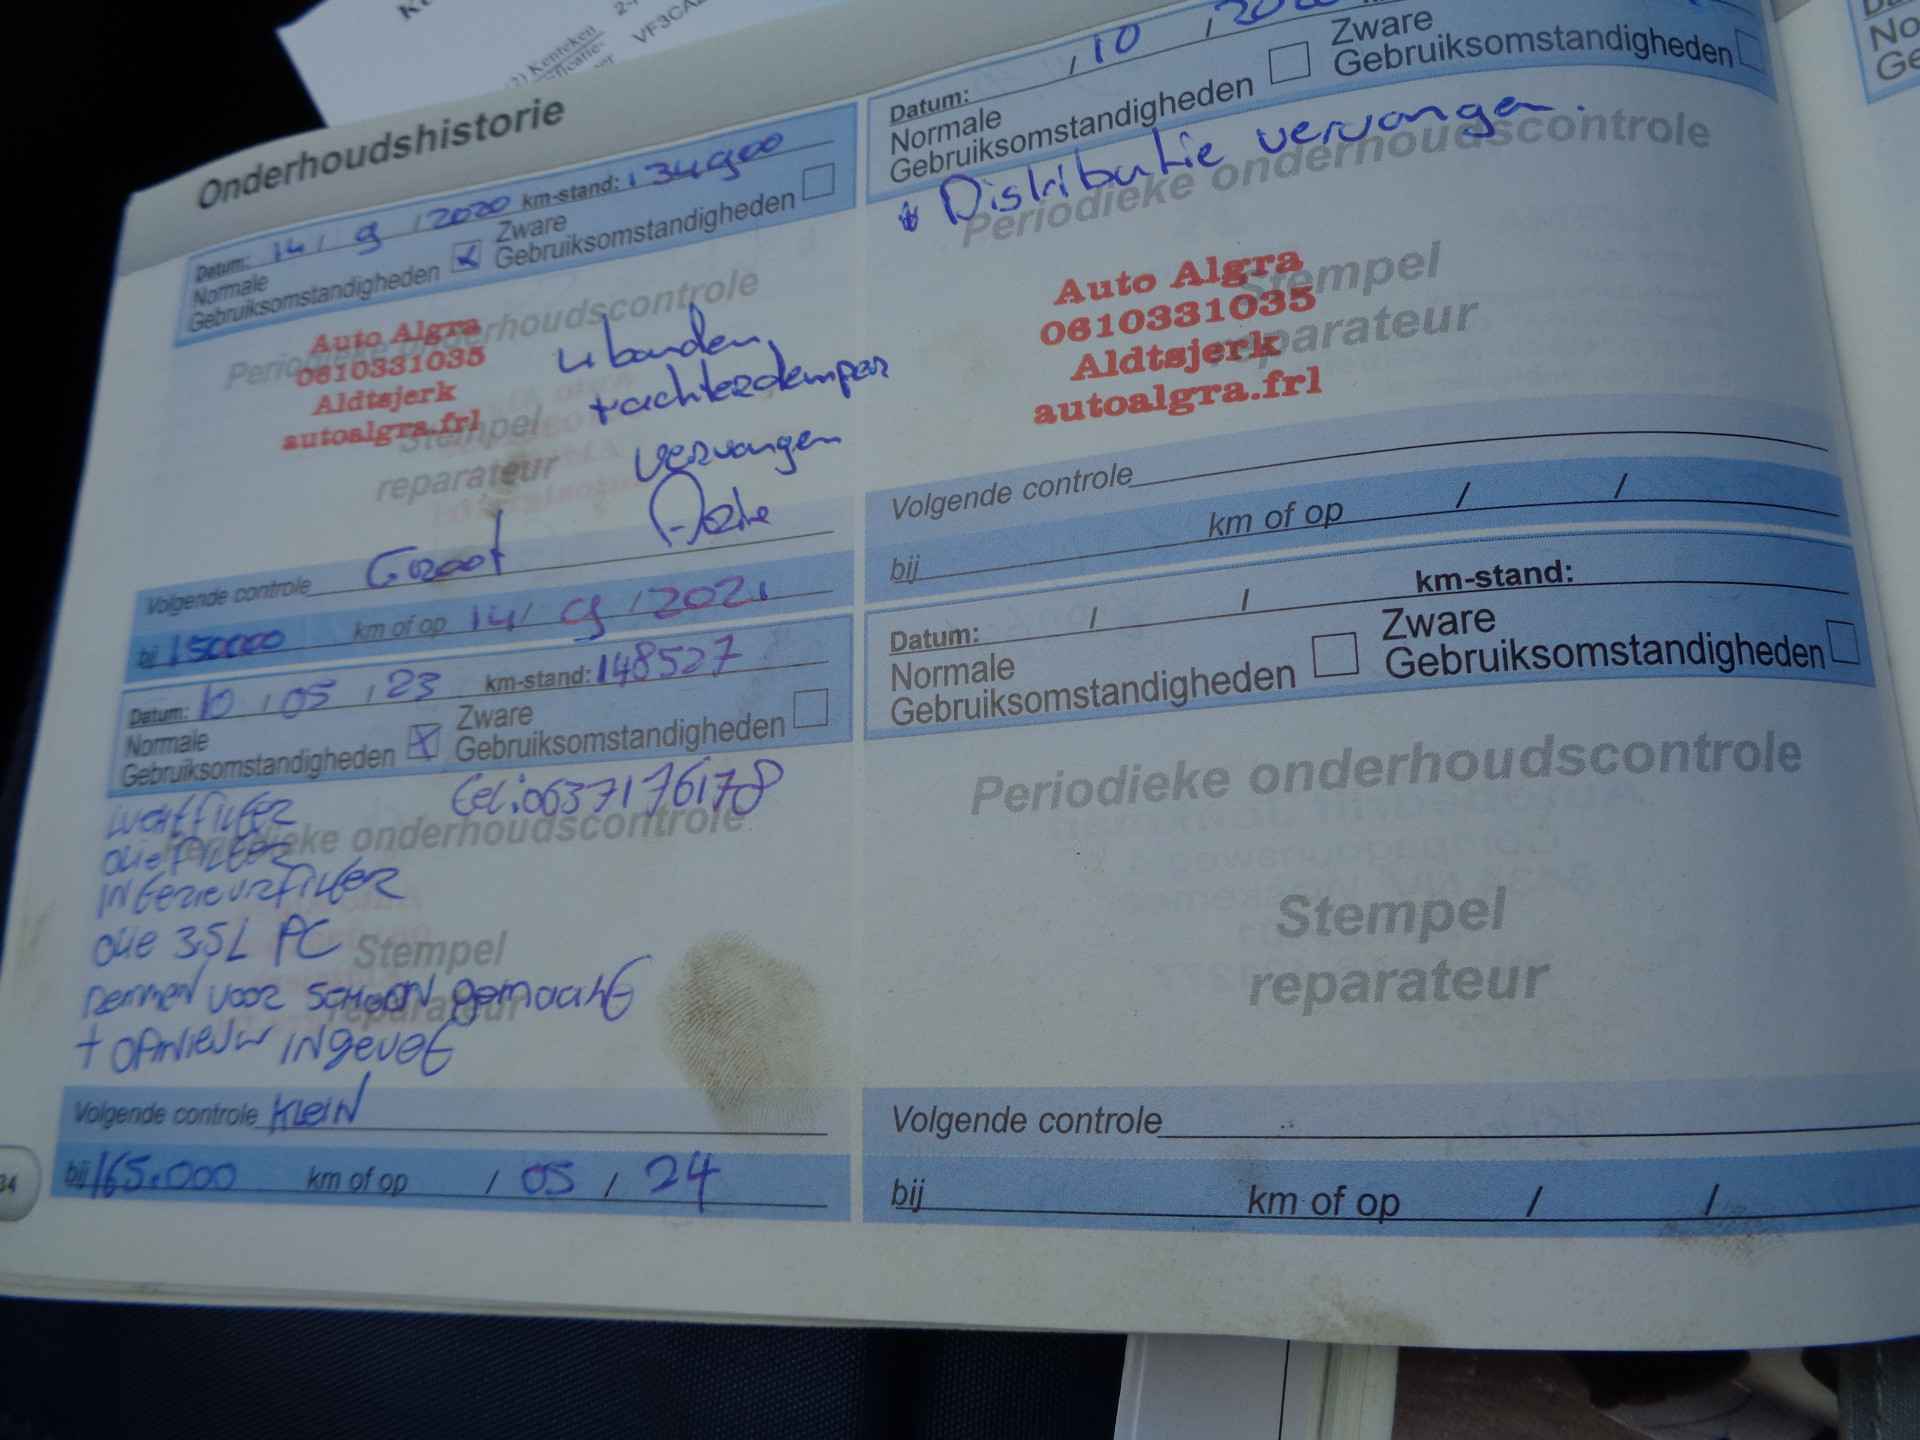 2) Kenteken
VF3CA
Onderhoudshistorie
Datum: 14 / 9 / 2020 km-stand: 134900
Normale
Gebruiksomstandigheden
Zware
Gebruiksomstandigheden
Periodieke onderhoudscontrole
Auto Algra
0610331035
Aldtsjerk
autoalgra.frl
Stempel
reparateur
4 banden,
+achterdemper
vervangen
Volgende controle Groot
bij 150000 km of op 14 / 9 / 2021
Datum: 10 / 05 / 23 km-stand: 148527
Normale
Gebruiksomstandigheden
Zware
Gebruiksomstandigheden
tel: 0637176178
Periodieke onderhoudscontrole
luchtfilter
oliefilter
interieurfilter
olie 3,5L PC
Stempel
reparateur
remmen voor schoon gemaakt
+ opnieuw ingevet
Volgende controle Klein
bij 165.000 km of op / 05 / 24
34
Datum: / 10 /
Normale
Gebruiksomstandigheden
Zware
Gebruiksomstandigheden
* Distributie vervangen.
Periodieke onderhoudscontrole
Auto Algra
0610331035
Aldtsjerk
autoalgra.frl
Stempel
reparateur
Volgende controle
bij km of op / /
Datum: / / km-stand:
Normale
Gebruiksomstandigheden
Zware
Gebruiksomstandigheden
Periodieke onderhoudscontrole
Stempel
reparateur
Volgende controle
bij km of op / /